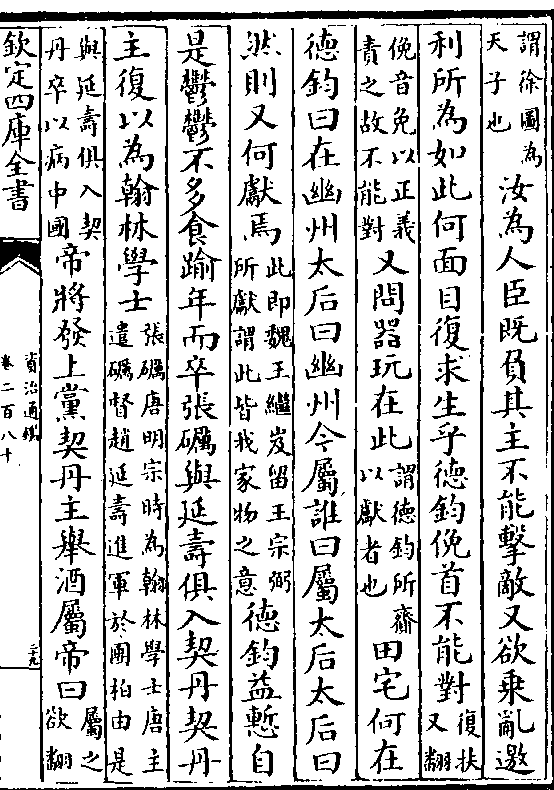 謂徐圖為
天子也
汝為人臣既負其主不能擊敵又欲乘亂邀
利所為如此何面目復求生乎德鈞俛首不能對
復扶
又翻
俛音免以正義
責之故不能對
又問器玩在此
謂德鈞所齎
以獻者也
田宅何在
德鈞曰在幽州太后曰幽州今屬誰曰屬太后太后曰
然則又何獻焉
此即魏王繼岌留王宗弼
所獻謂此皆我家物之意
德鈞益慙自
是鬱鬱不多食踰年而卒張礪與延壽俱入契丹契丹
主復以為翰林學士
張礪唐明宗時為翰林學士唐主
遣礪督趙延壽進軍於團柏由是
與延壽俱入契
丹卒以病中國
帝將發上黨契丹主舉酒屬帝曰
屬之
欲翻
欽定四庫全書
資治通鑑
卷二百八十